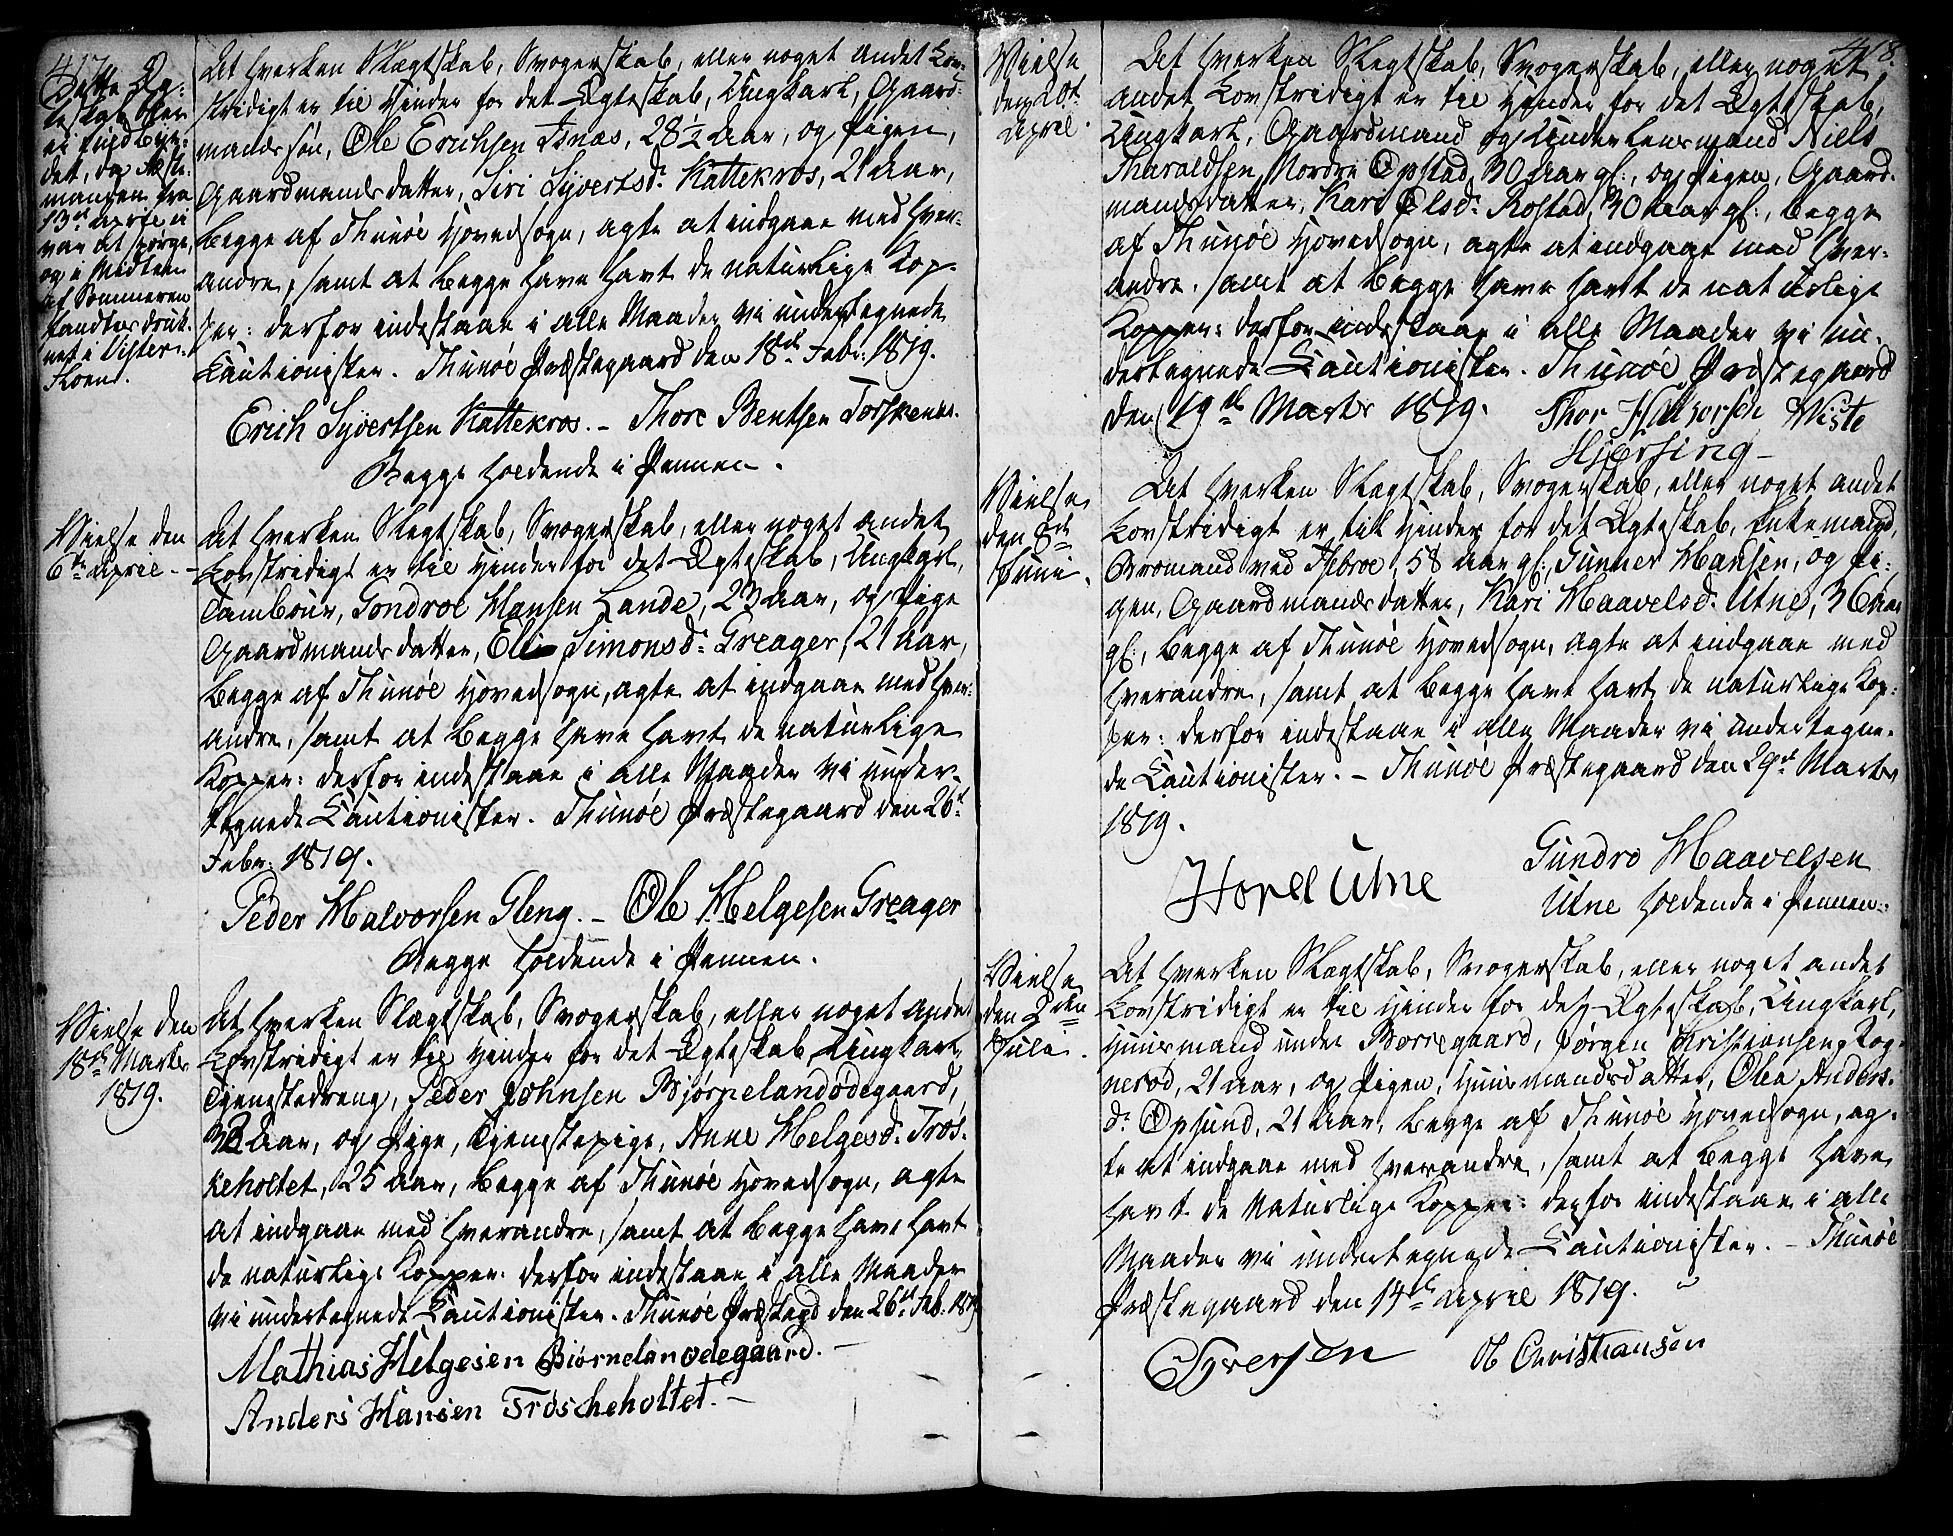 417.
Dette Æg-
teskab blev
ei fuldbyr-
det, da Æst-
manden fra
13de april u
var at spørge,
og i Midten
af Sommeren
fandtes druk-
net i Vister-
floen.
At hverken Slægtskab, Svogerskab, eller noget andet Lov-
stridigt er til Hinder for det Ægteskab, Ungkarl, Gaard-
mandssøn, Ole Erichsen Isnæs, 28½ Aar, og Pigen,
Gaardmandsdatter, Siri Syvertsd: Kattekros, 21 Aar,
begge af Thunøe Hovedsogn, agte at indgaae med hver-
andre, samt at begge have havt de naturlige Kop-
per: derfor indestaae i alle Maader vi undertegnede
Cautionister. Thunøe Præstegaard den 18de Febr: 1819.
Erich Syvertsen Kattekros. – Thore Bentsen Torskenes.
Begge holdende i Pennen.
Vielse den
6te April. –
At hverken Slegtskab, Svogerskab, eller noget andet
Lovstridigt er til Hinder for det Ægteskab, Ungkarl,
Tambour, Gondroe Hansen Lande, 23 Aar, og Pige
Gaardmandsdatter, Eli Simonsd: Greager, 21 Aar,
begge af Thunøe Hovedsogn, agte at indgaae med hver-
andre, samt at begge have havt de naturlige
Kopper: derfor indestaae i alle Maader vi under-
tegnede Cautionister. Thunøe Præstegaard den 26d
Febr: 1819.
Peder Halvorsen Gleng. – Ole Helgesen Greager
Begge holdende i Pennen.
Vielse den
18de Marts
1819.
At hverken Slægtskab, Svogerskab, eller noget andet
Lovstridigt er til Hinder for det Ægteskab Ungkarl,
Tjenestedreng, Peder Johnsen Bjørnelandødegaard,
Aar, og Pige, Tjenestepige, Anne Helgesd: Trøs-
keholtet, 25 Aar, begge af Thunøe Hovedsogn, agte
at indgaae med hverandre, samt at begge have havt
de naturlige Kopper: derfor indestaae i alle Maader
vi undertegnede Cautionister. Thunøe Præstegd den 26d Feb. 1819
Mathias Helgesen Biørnelanødegaard. –
Anders Hansen Trøscheholtet. –
418.
Vielse
den 20d
April.
At hverken Slegtskab, Svogerskab, eller noget
andet Lovstridigt er til Hinder for det Ægteskab,
Ungkarl, Gaardmand og Underlensmand Niels
Tharaldsen, Nordre Opstad, 30 Aar gl:, og Pigen, Gaard-
mandsdatter, Kari Olsd: Rostad, 30 Aar gl:, begge
af Thunøe Hovedsogn, agte at indgaae med hver-
andre, samt at begge have havt de naturlige
Kopper: derfor indestaae i alle Maader vi un-
dertegnede Cautionister. Thunøe Præstegaard
den 19de Marts 1819. Thor Halvorsen Viste
Hjersing –
Vielse
den 8de
Juni.
At hverken Slegtskab, Svogerskab, eller noget andet
Lovstridigt er til Hinder for det Ægteskab, Enkemand,
Bromand ved Isebroe, 58 Aar gl:, Gunner Hansen, og Pi-
gen, Gaardmandsdatter, Kari Haavelsd: Utne, 36 Aar
gl:, begge af Thunøe Hovedsogn, agte at indgaae med
hverandre, samt at begge have havt de naturlige Kop-
per: derfor indestaae i alle Maader vi undertegne-
de Cautionister. – Thunøe Præstegaard den 29d Marts
1819.
Hovel Utne
Gundro Haavelsen
Utne holdende i Pennen.
Vielse
den 2den
Juli.
At hverken Slægtskab, Svogerskab, eller noget andet
Lovstridigt er til Hinder for det Ægteskab, Ungkarl,
Huusmand under Borregaard, Jørgen Kristiansen Rog-
nerød, 21 Aar, og Pigen, Huusmandsdatter, Olea Anders-
d: Opsund, 21 Aar, begge af Thunøe Hovedsogn, ag-
te at indgaae med hverandre, samt at begge have
havt de Naturlige Kopper: derfor indestaae i alle
Maader vi undertegnede Cautionister. – Thunøe
Præstegaard den 14de April 1819.
Syversen Ole Christiansen